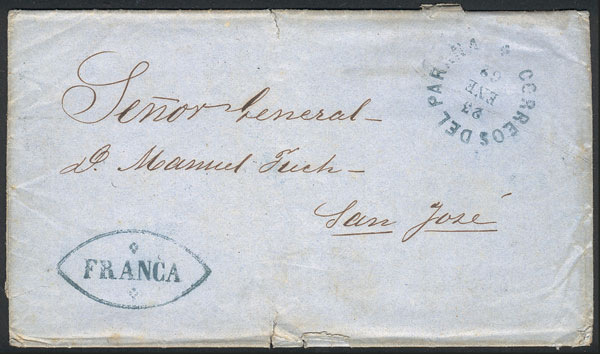 CORREOS DEL PARANA
23
ENE
Señor General
D. Manuel
San José
FRANCA